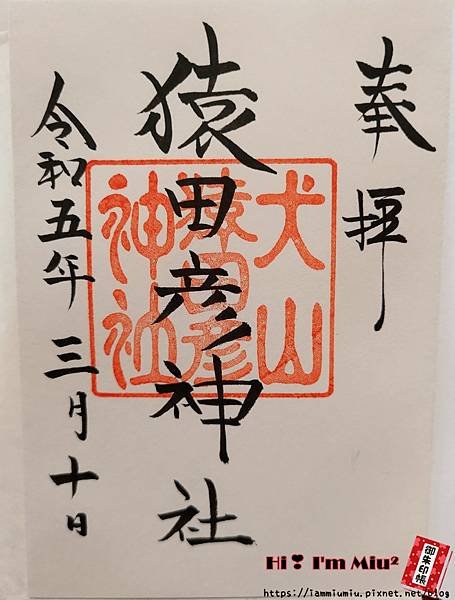 奉拝
猿田彦神社
犬山
猿田彦
神社
令和五年三月十日
Hi❣ I'm Miu²
御朱印帳
https://iammiumiu.pixnet.net/blog